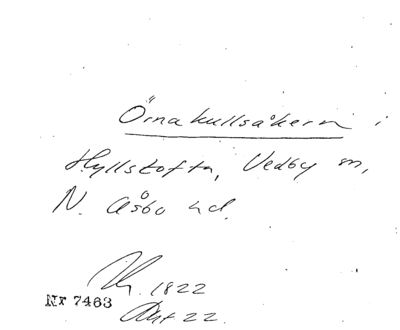 Örnakullsåkern i
Hyllstofta, Vedby sn,
N. Åsbo hd.
1822
Nr 7463
Akt 22.